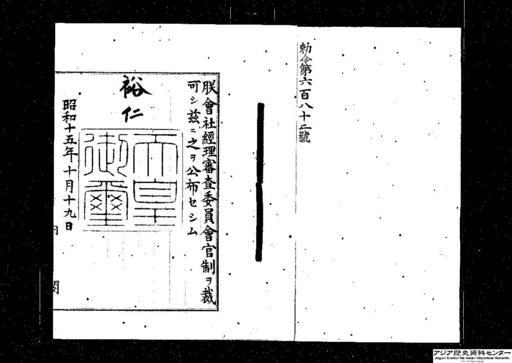 勅令第六百八十二號
朕會社經理審査委員會官制ヲ裁
可シ茲ニ之ヲ公布セシム
裕仁
天皇
御璽
昭和十五年十月十九日
内閣
アジア歴史資料センター
Japan Center for Asian Historical Records